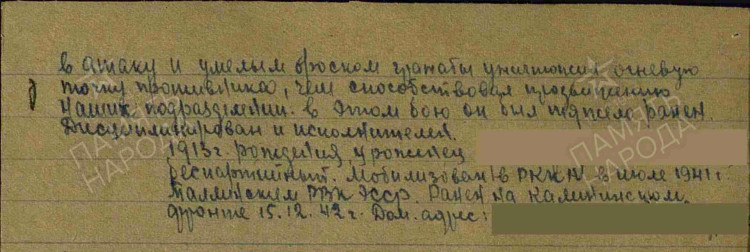 в атаку и умелым броском гранаты уничтожил огневую
точку противника, чем способствовал продвижению
наших подразделений. в этом бою он был тяжело ранен.
Дисциплинирован и исполнителен.
1913 г. рождения, уроженец
беспартийный. Мобилизован в РККА в июле 1941 г.
Таллинским РВК ЭССР. Ранен на Калининском
фронте 15.12.42 г. Дом. адрес:
ПАМЯТЬ
НАРОДА
ПАМЯТЬ
НАРОДА